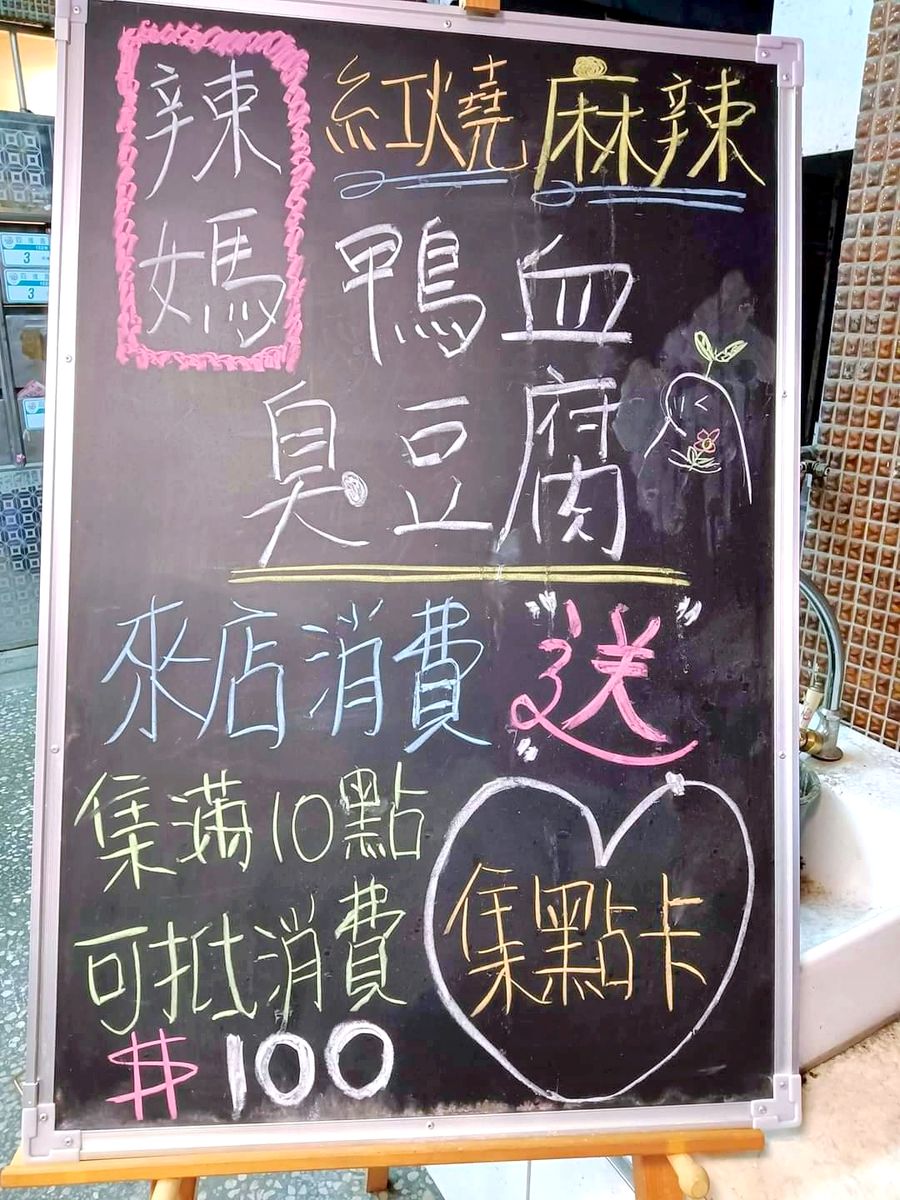 辣媽
紅燒 麻辣
鴨血
臭豆腐
來店消費 "送"
集滿10點
可抵消費
$100
集點卡
3
3